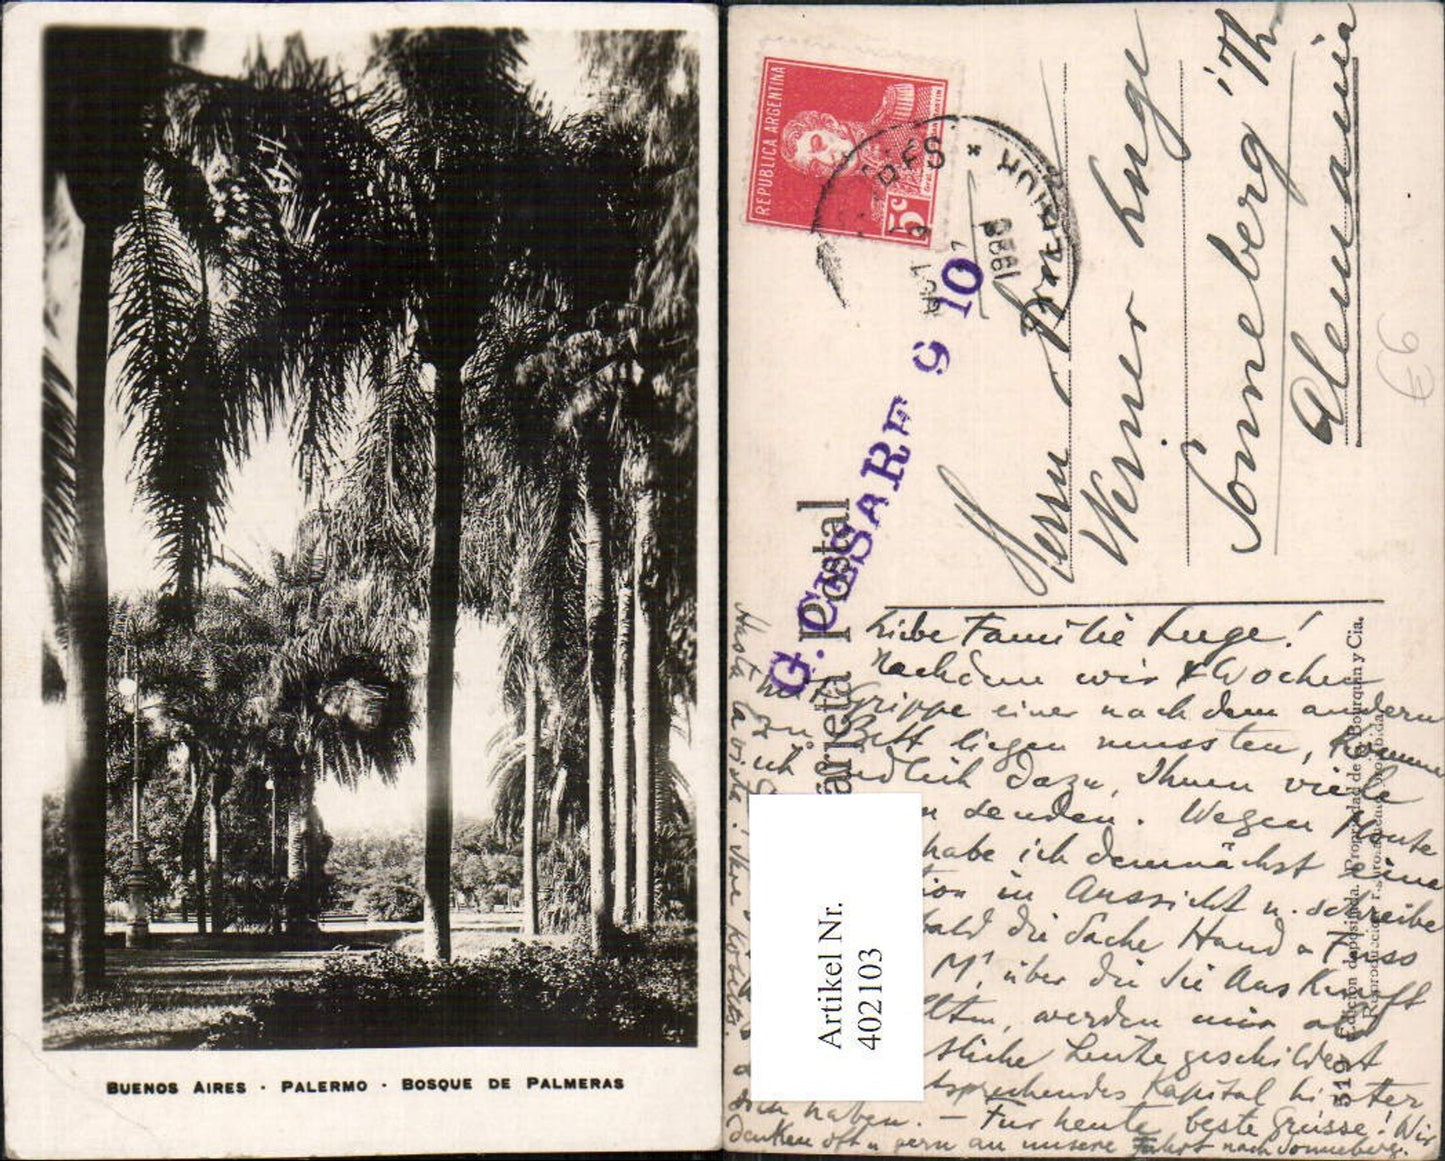 BUENOS AIRES · PALERMO · BOSQUE DE PALMERAS
REPUBLICA ARGENTINA
5c
G. CESARE 9 10
Tarjeta Postal
Herrn
Werner Luge
Sonneberg Th
Alemania
Liebe Familie Luge!
Nachdem wir 4 Wochen
mit Grippe einer nach dem andern
im Bett liegen mussten, komme
ich endlich dazu, Ihnen viele
senden. Wegen Heute
habe ich demnächst eine
in Aussicht u. schreibe
bald die Sache Hand u Fuss
M., über die Sie Auskunft
werden mir als
Leute geschildert
Kapital hinter
sich haben. – Für heute beste Grüsse! Wir
denken oft u gern an unsere Fahrt nach Sonneberg.
Hasta la vista! Ihre
519 Edición depositada. Propiedad de Bourquin y Cia.
Artikel Nr.
402103